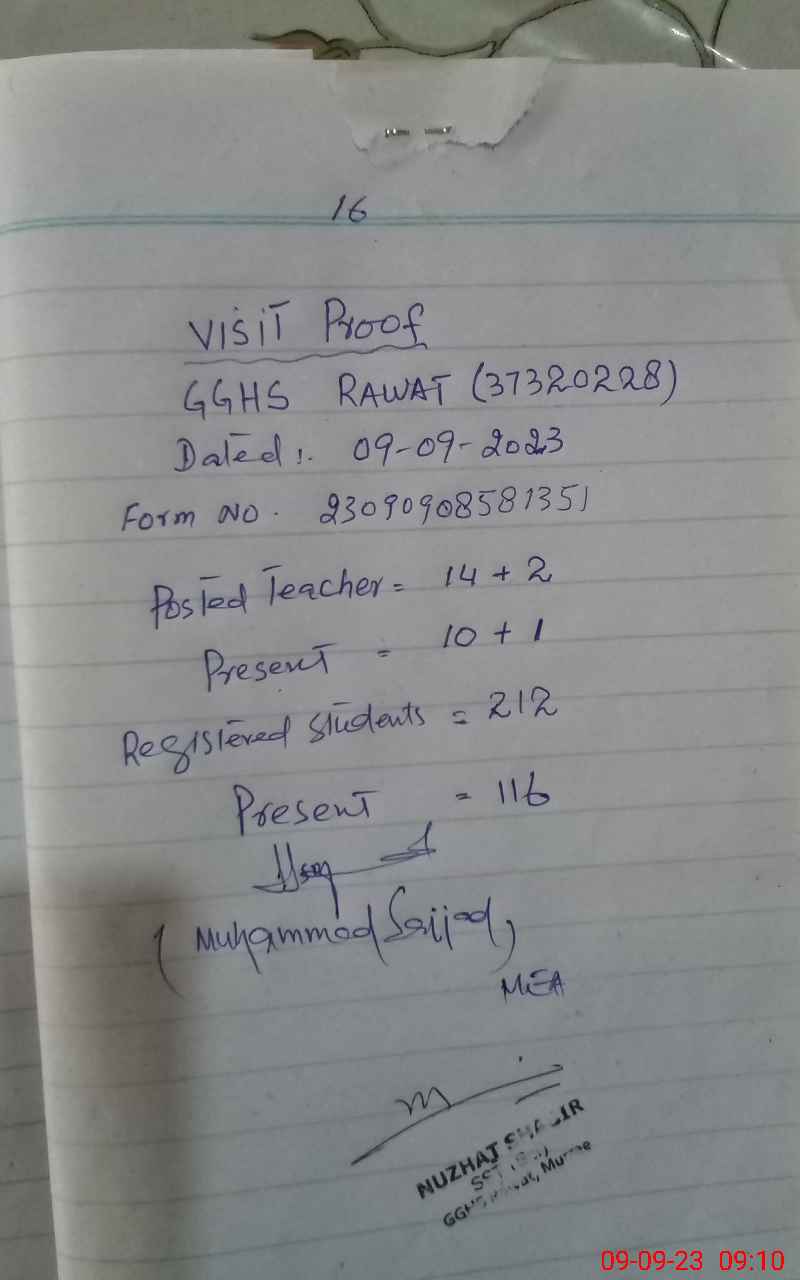 16
VISIT Proof
GGHS RAWAT (37320228)
Dated:. 09-09-2023
Form NO. 23090908581351
Posted Teacher = 14 + 2
Present = 10 + 1
Registered Students = 212
Present = 116
(Muhammad Sajjad)
MEA
NUZHAT
SST
GGHS
09-09-23 09:10